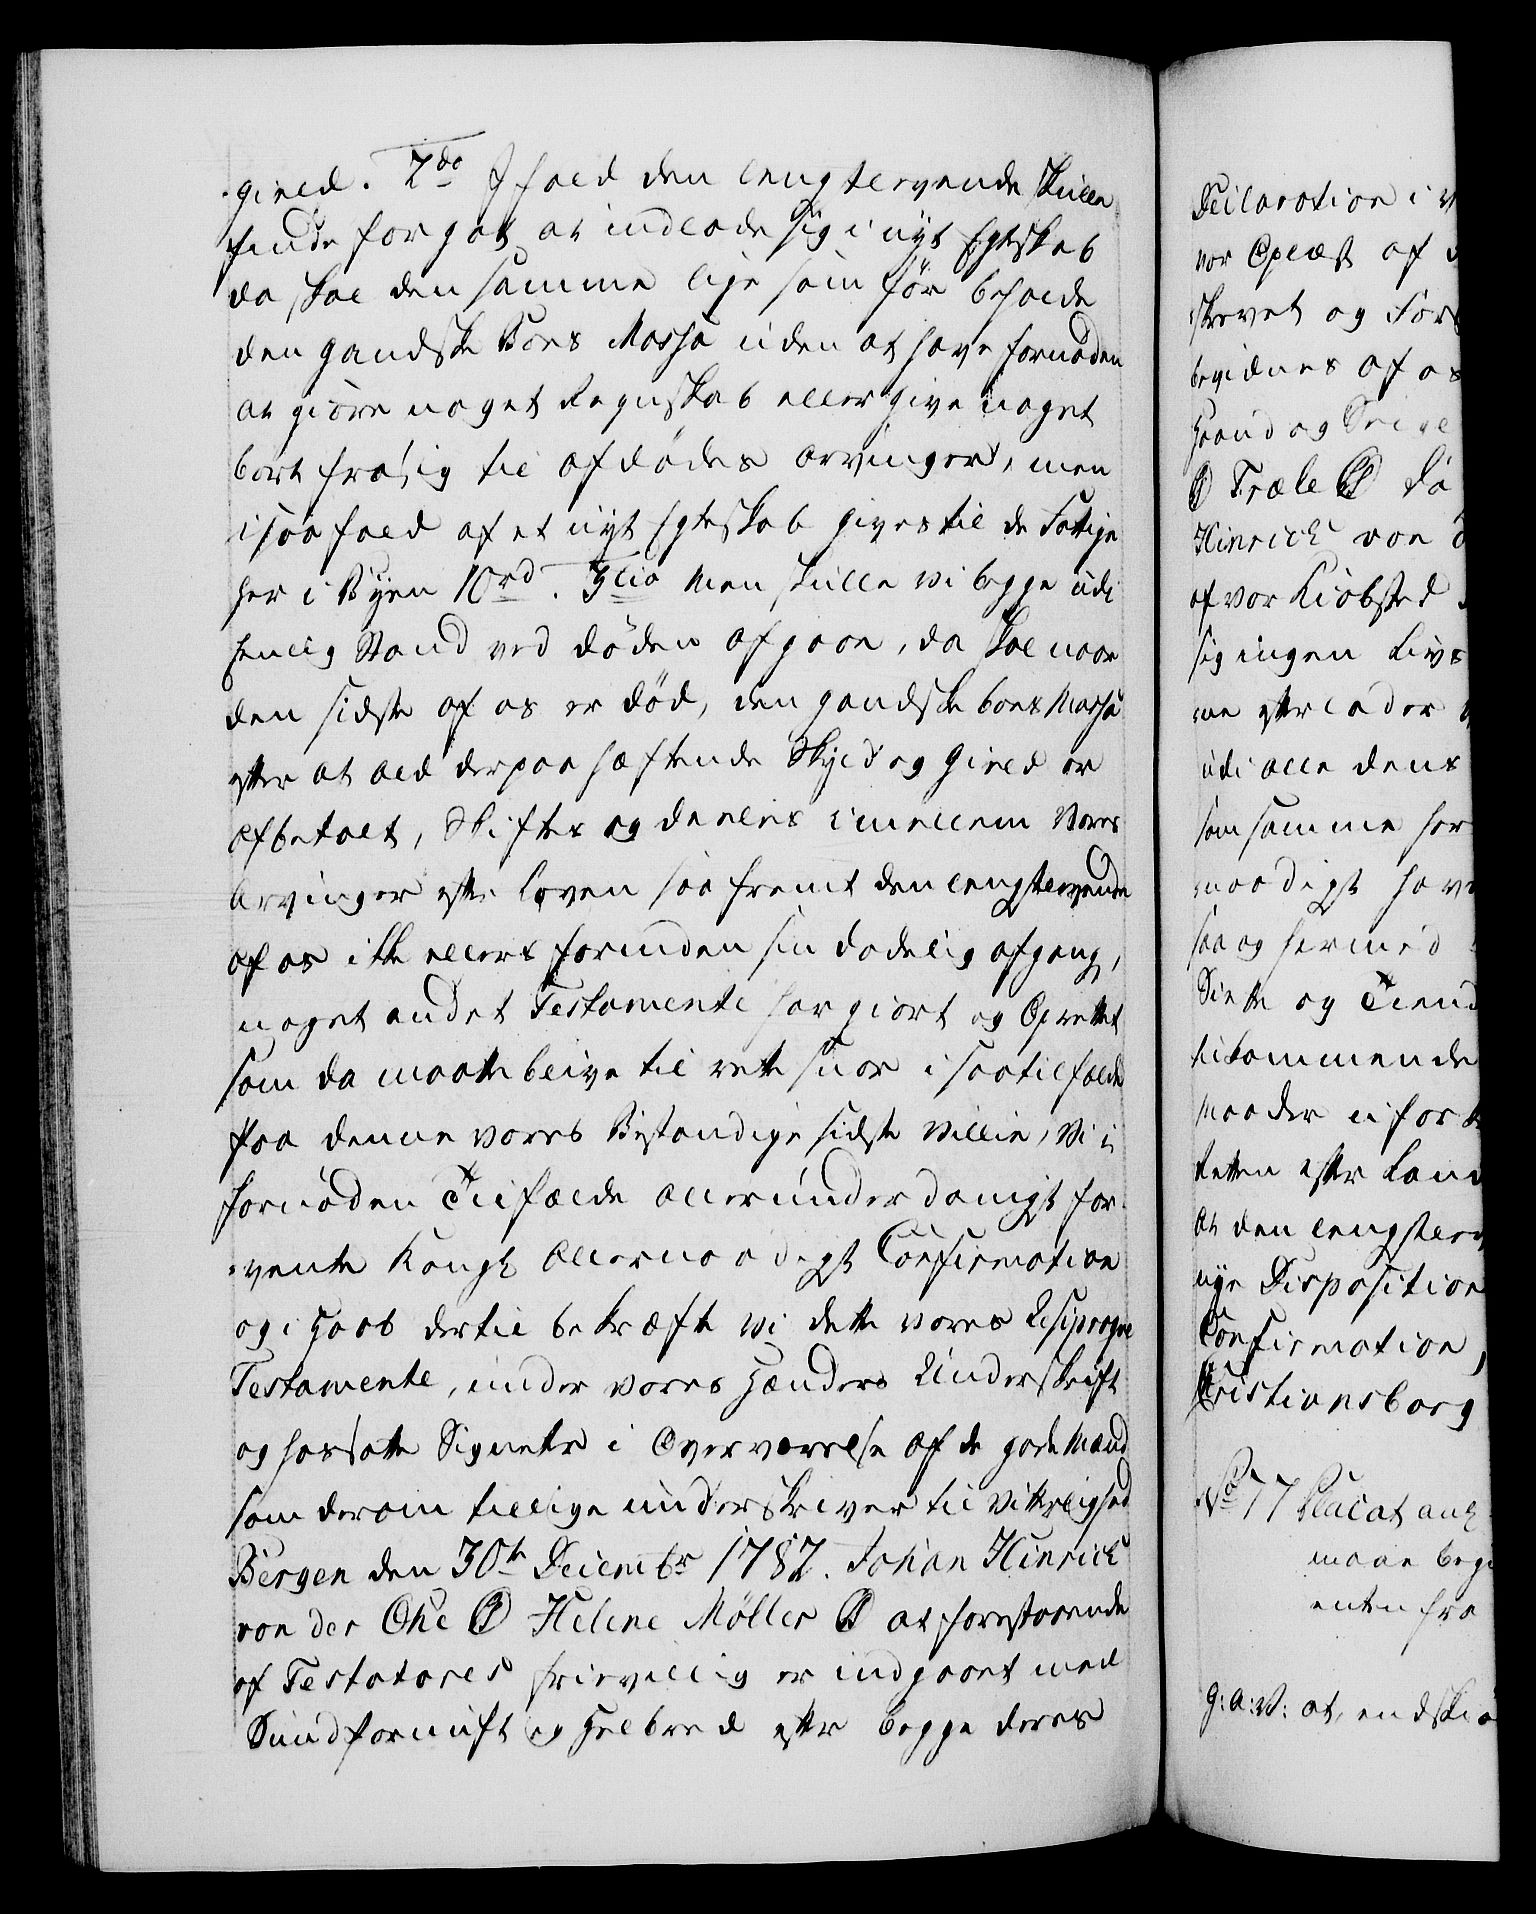 gield. 2do Ifald den lengstlevende skulle
finde for got at indlade sig i nyt Egteskab
da skal den samme lige som før beholde
den gandske Boes Massa uden at have fornøden
at giøre noget Regnskab eller give noget
bort fra sig til afdødes arvinger, men
i saa fald af et nyt Egteskab gives til de Fattige
her i Byen 10 rd. 3tio Men skulle vi begge udi
Eenlig Stand ved døden afgaae, da skal naar
den sidste af os er død, den gandske boes Massa
efter at ald derpaa hæftende Skyld og Gield er
afbetalt, Skiftes og deeles imellem vores
Arvinger efter Loven saa fremt den lengstlevende
af os ikke ellers forinden sin dødelig afgang,
noget andet Testamente har giort og Oprettet
som da maatte blive til rette snor i saa tilfælde
Paa denne vores Bestandige sidste Villie, vi i
fornøden Tilfælde allerunderdanigst for-
vente Kongl Allernaadigst Confirmation
og i Haab dertil bekræfte vi dette vores Resiproqve
Testamente, under vores Hænders Underskrift
og hossatte Signeter i Overværelse af de gode Mænd
som derom tillige underskriver til Vitterlighed
Bergen den 30te Decembr 1782. Johan Hinrich
von der Ohe Helene Møller at forestaaende
af Testatores frievillig er indgaaet med
Sund fornuft og Helbred efter begge deres
Declaration i
vor Oplæst af
skrevet og For
bevidnes af os
Haand og Seigl
Træle Da
Hinrich von
af vor Kiøbsted
sig ingen Livs
me efterlader
udi alle dens
som samme her
naadigst have
saa og hermed
Siette og Tiend
tilkommende
Maader uforkr
Retten efter Land
At den lengstlev
nye Disposition
Confirmation,
Christiansborg
No 77 Placat ang
maae begi
enten fra
G: A: V: at, endskiø